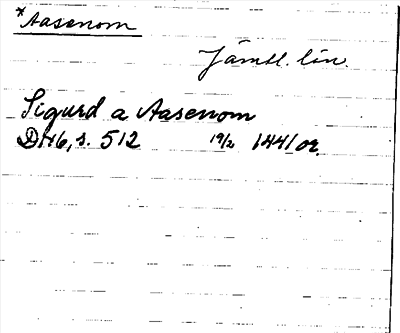 *Aasenom
Jämtl. län.
Sigurd a Aasenom
DN 16, s. 512 19/2 1441 or.